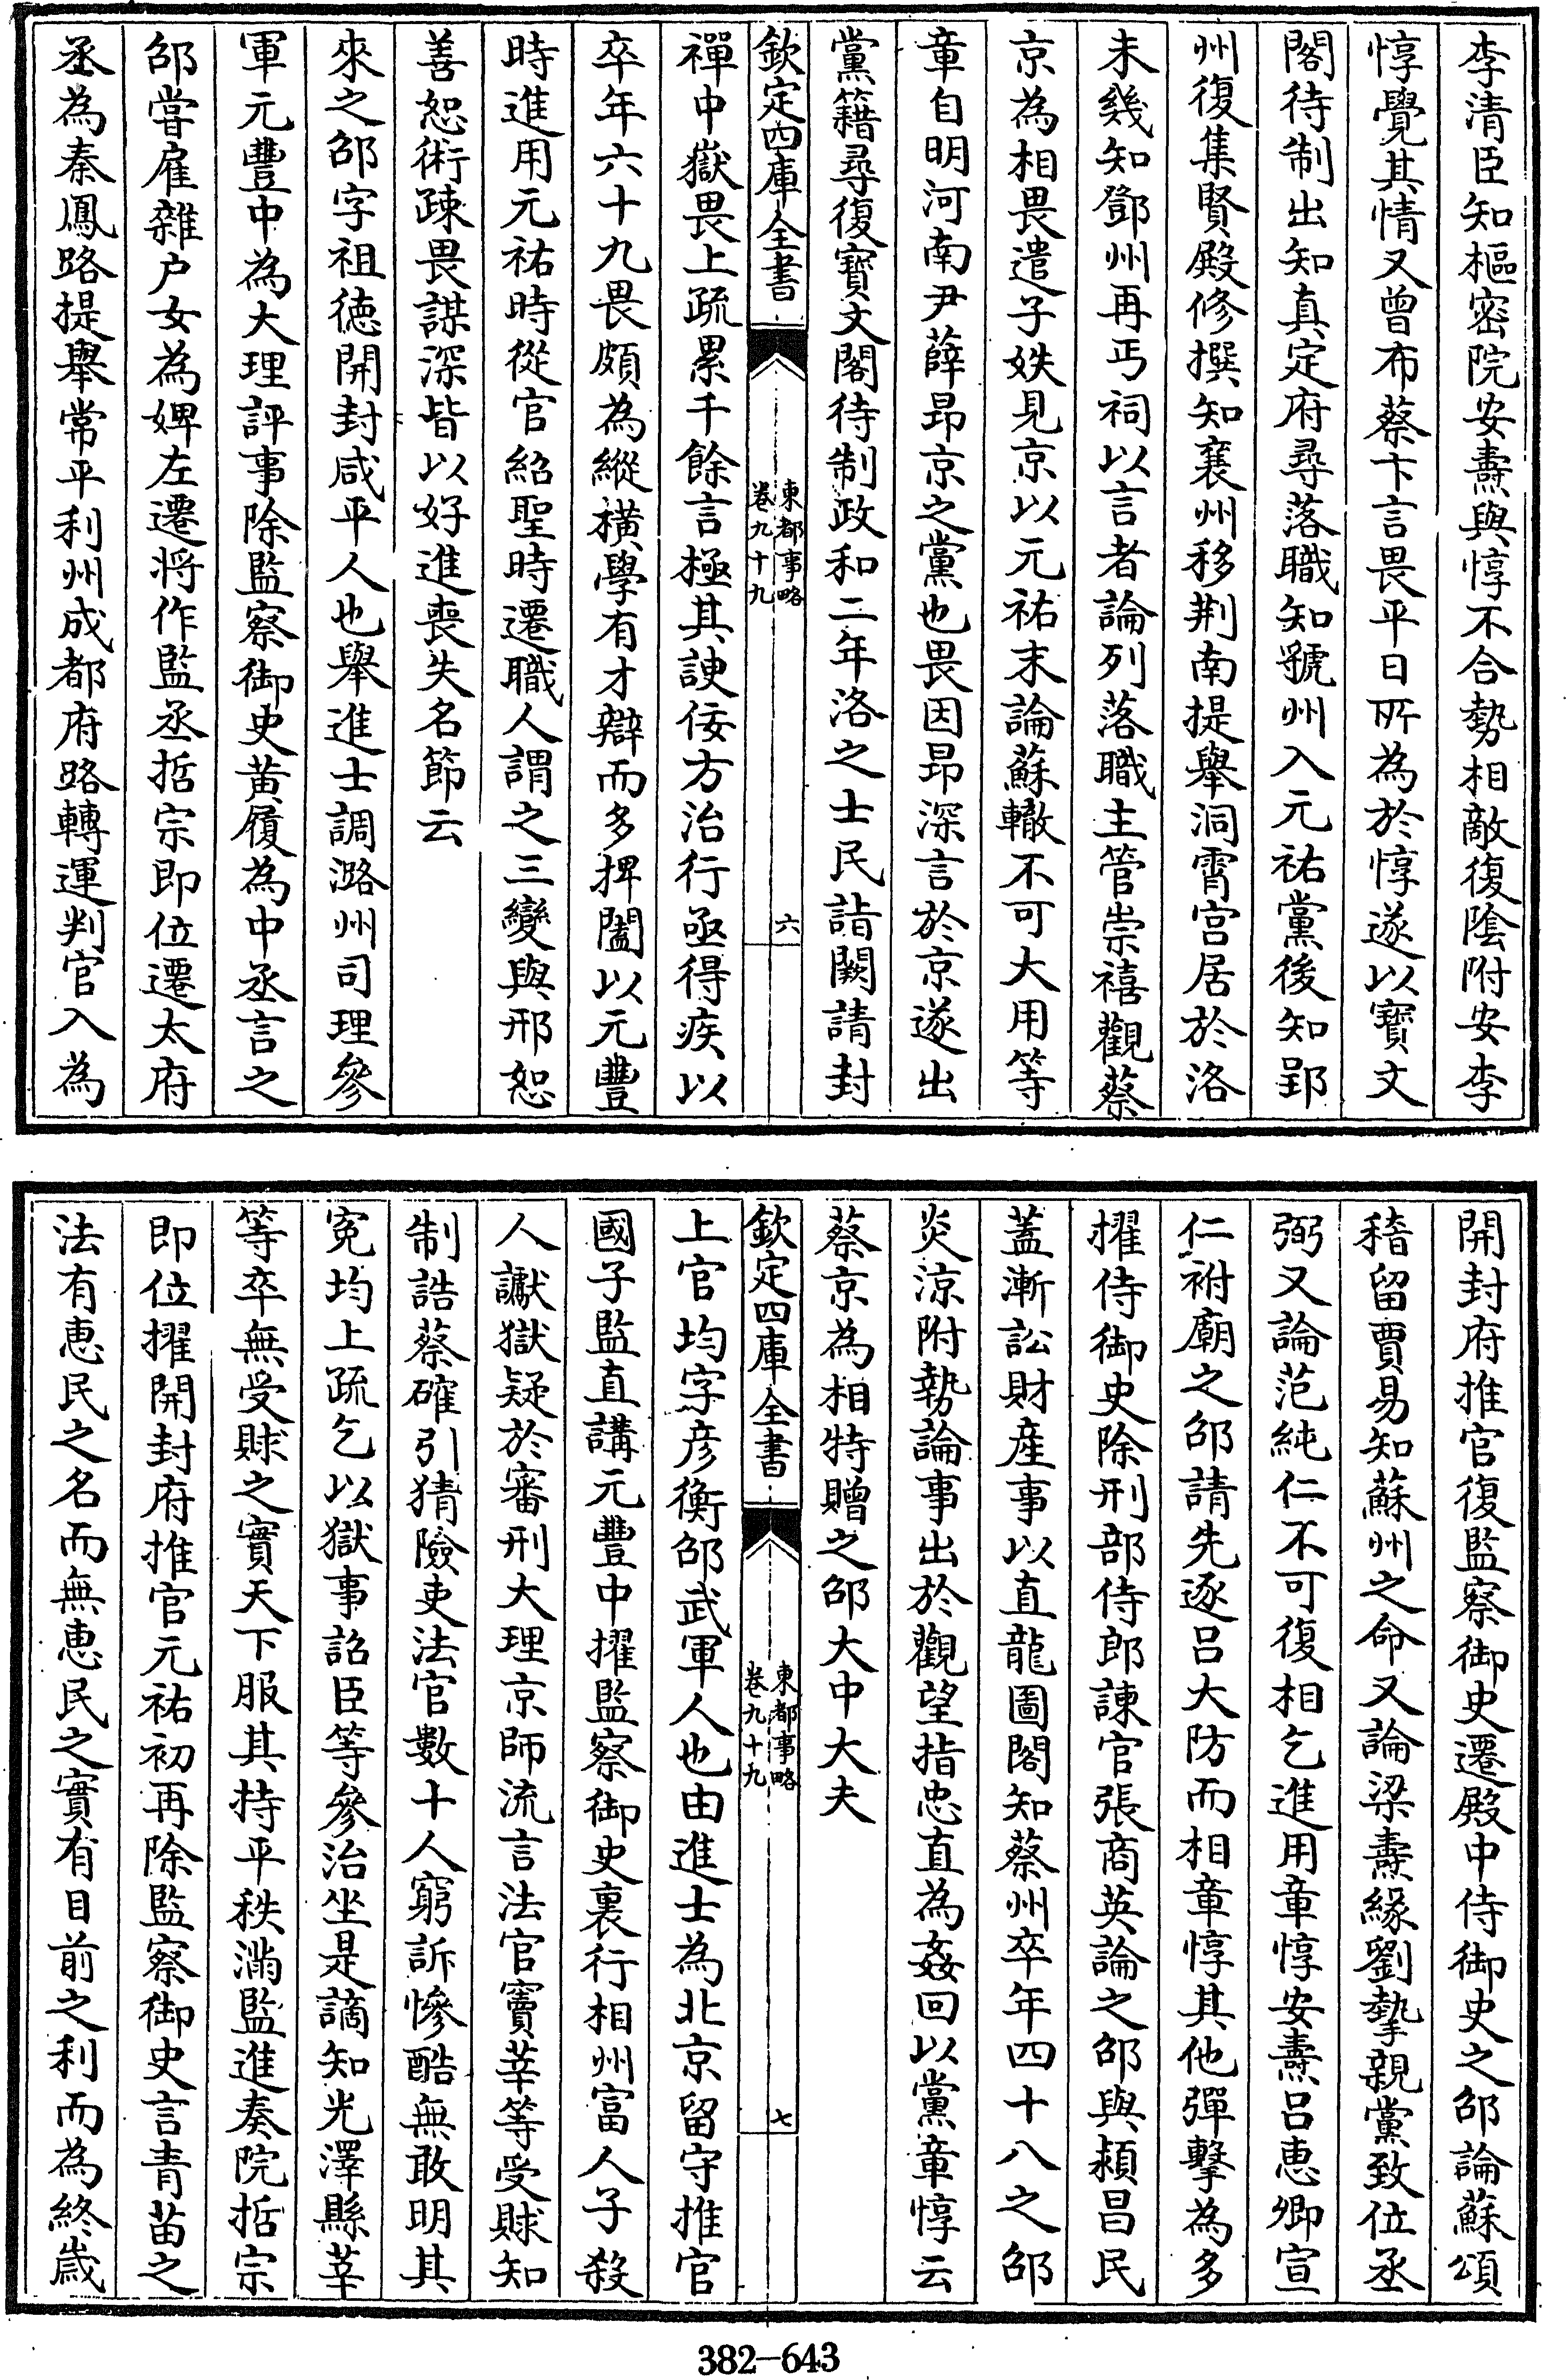 李清臣知樞密院安燾與惇不合勢相敵復陰附安李
惇覺其情又曾布蔡卞言畏平日所為於惇遂以寶文
閣待制出知真定府尋落職知虢州入元祐黨後知郢
州復集賢殿修撰知襄州移荆南提舉洞霄宫居於洛
未幾知鄧州再丐祠以言者論列落職主管崇禧觀蔡
京為相畏遣子姪見京以元祐末論蘇轍不可大用等
章自明河南尹薛昂京之黨也畏因昂深言於京遂出
黨籍尋復寶文閣待制政和二年洛之士民詣闕請封
欽定四庫全書
東都事略
卷九十九
六
禪中嶽畏上疏累千餘言極其諛佞方治行亟得疾以
卒年六十九畏頗為縱横學有才辯而多捭闔以元豐
時進用元祐時從官紹聖時遷職人謂之三變與邢恕
善恕術疎畏謀深皆以好進喪失名節云
來之邵字祖徳開封咸平人也舉進士調潞州司理參
軍元豐中為大理評事除監察御史黄履為中丞言之
邵嘗雇雜户女為婢左遷將作監丞哲宗即位遷太府
丞為秦鳳路提舉常平利州成都府路轉運判官入為
開封府推官復監察御史遷殿中侍御史之邵論蘇頌
稽留賈易知蘇州之命又論梁燾緣劉摯親黨致位丞
弼又論范純仁不可復相乞進用章惇安燾吕惠卿宣
仁祔廟之邵請先逐吕大防而相章惇其他彈擊為多
擢侍御史除刑部侍郎諫官張商英論之邵與頴昌民
蓋漸訟財産事以直龍圖閣知蔡州卒年四十八之邵
炎涼附勢論事出於觀望指忠直為姦回以黨章惇云
蔡京為相特贈之邵大中大夫
欽定四庫全書
東都事略
卷九十九
七
上官均字彦衡邵武軍人也由進士為北京留守推官
國子監直講元豐中擢監察御史裏行相州富人子殺
人讞獄疑於審刑大理京師流言法官竇莘等受賕知
制誥蔡確引猜險吏法官數十人窮訴慘酷無敢明其
寃均上疏乞以獄事詔臣等參治坐是謫知光澤縣莘
等卒無受賕之實天下服其持平秩滿監進奏院哲宗
即位擢開封府推官元祐初再除監察御史言青苗之
法有恵民之名而無恵民之實有目前之利而為終歲
382-643